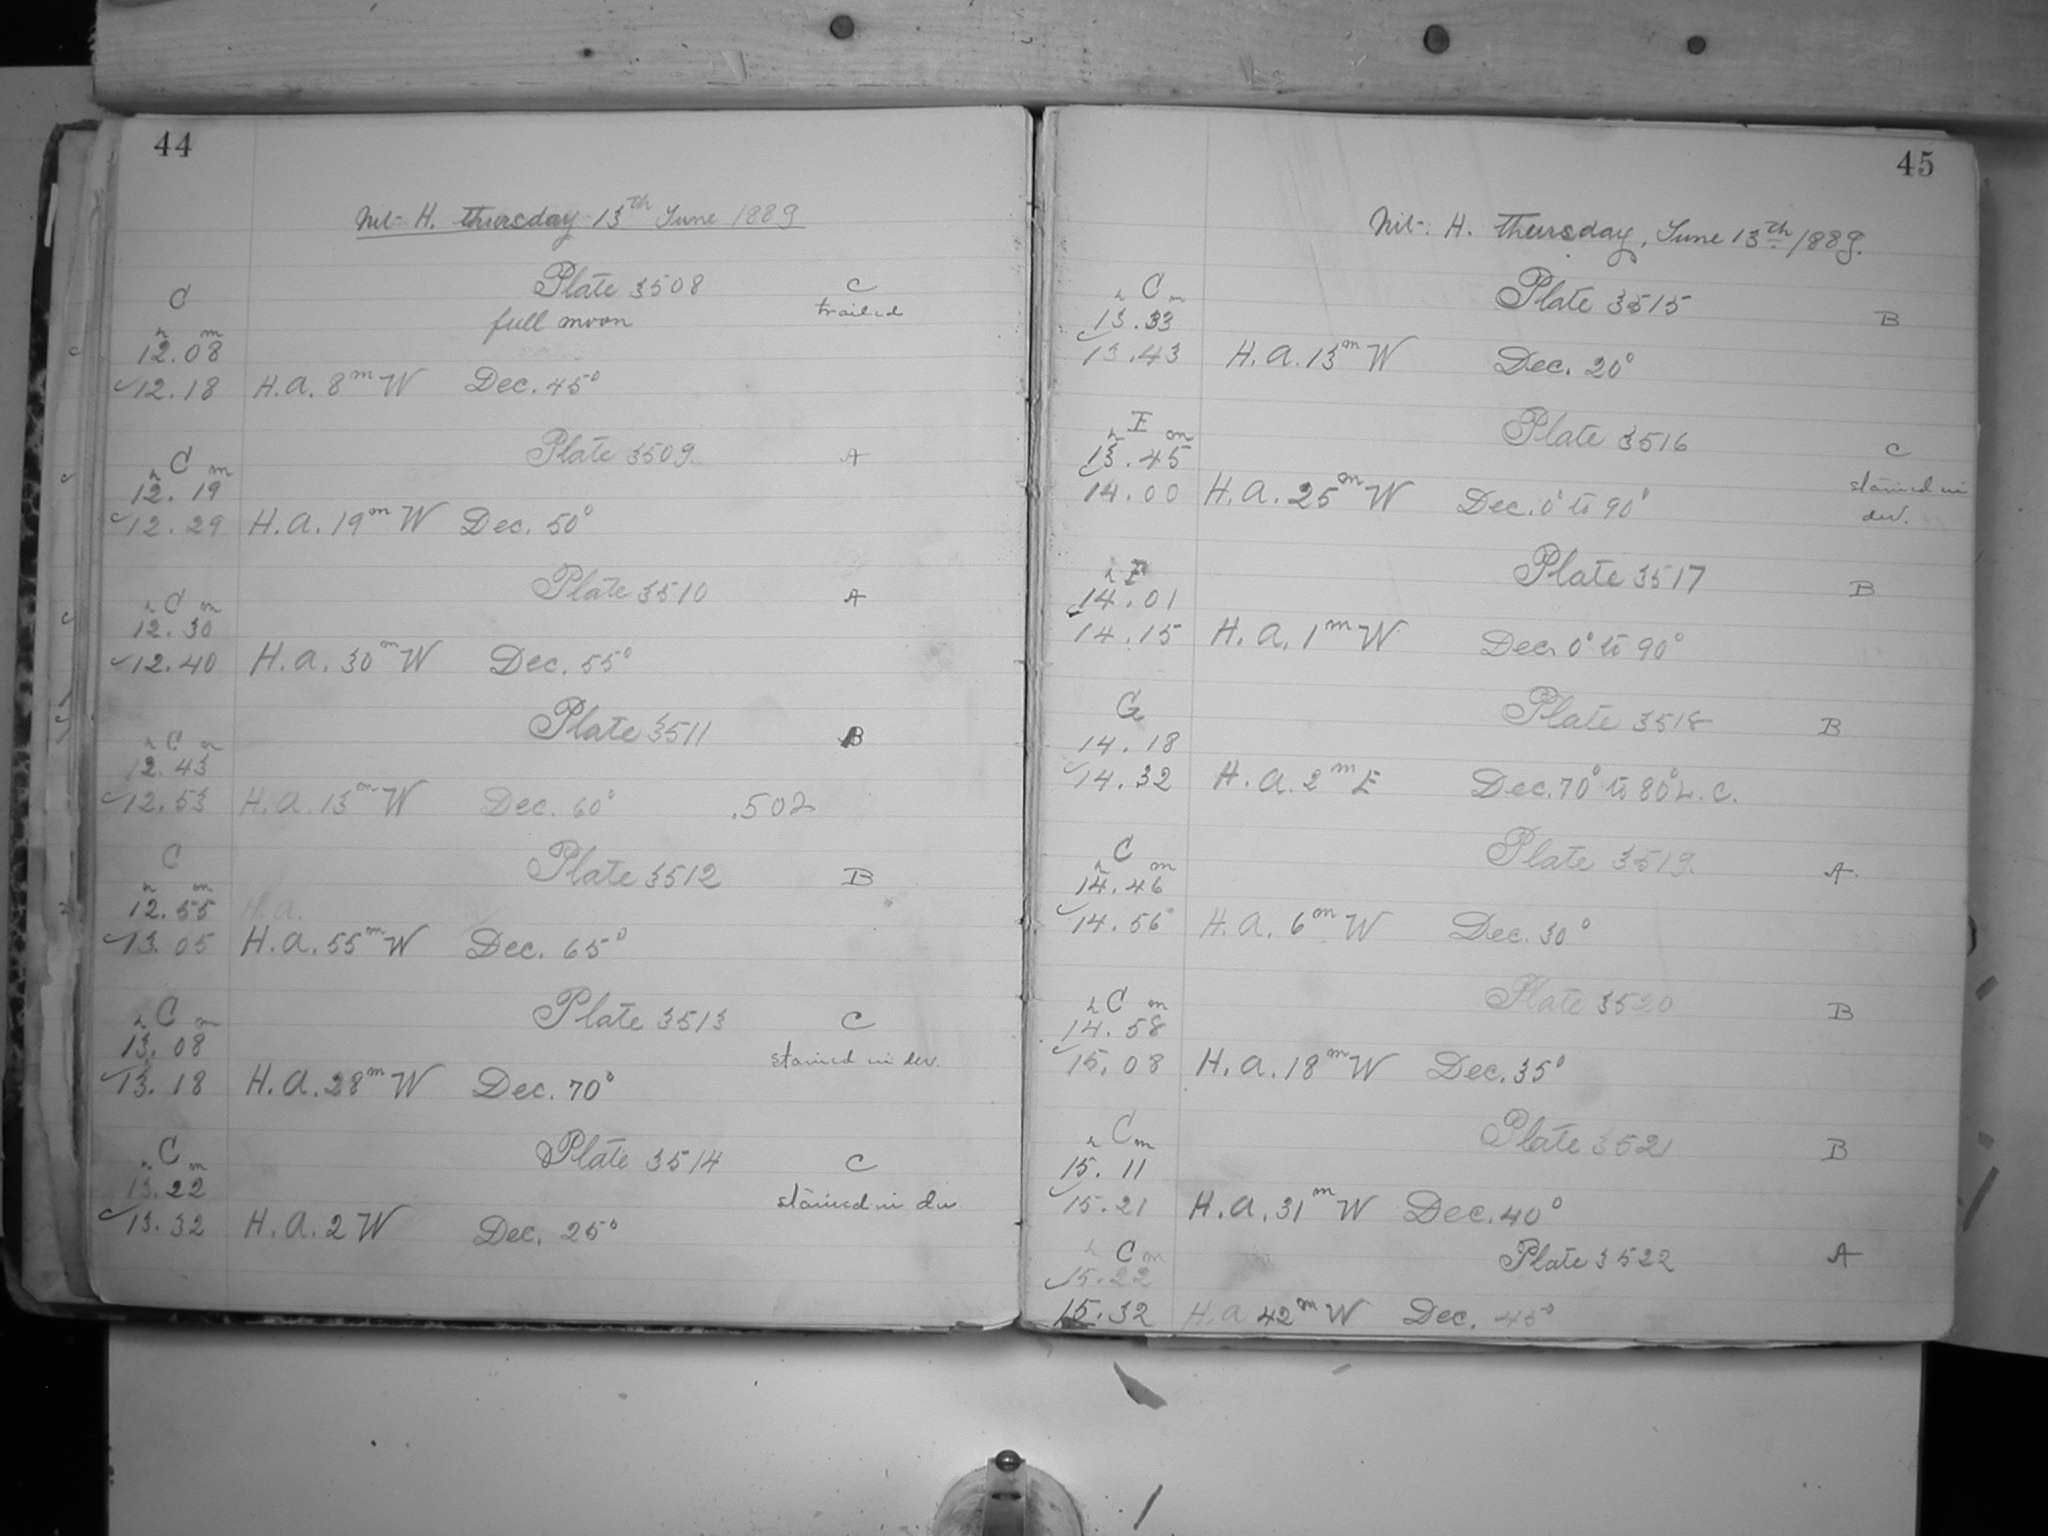 44
Mt. H. Thursday 13th June 1889
C Plate 3508 C
full moon trailed
h m
12.08
12.18 H.A. 8m W Dec. 45°
Plate 3509 A
h C m
12.19
12.29 H.A. 19m W Dec. 50°
Plate 3510 A
h C m
12.30
12.40 H.A. 30m W Dec. 55°
Plate 3511 B
h C m
12.43
12.53 H.A. 13m W Dec. 60° .502
C Plate 3512 B
h m
12.55 H.A.
13.05 H.A. 55m W Dec. 65°
h C m Plate 3513 C
13.08 stained in dev.
13.18 H.A. 28m W Dec. 70°
h C m Plate 3514 C
13.22 stained in dev
13.32 H.A. 2 W Dec. 25°
45
Mt. H. Thursday, June 13th 1889.
h C m Plate 3515 B
13.33
13.43 H.A. 13m W Dec. 20°
h F m Plate 3516 C
13.45 stained in
14.00 H.A. 25m W Dec. 0° to 90° dev.
h F Plate 3517 B
14.01
14.15 H.A. 1m W Dec. 0° to 90°
G Plate 3518 B
14.18
14.32 H.A. 2m E Dec. 70° to 80° L.C.
h C m Plate 3519. A.
14.46
14.56 H.A. 6m W Dec. 30°
h C m Plate 3520 B
14.58
15.08 H.A. 18m W Dec. 35°
h C m Plate 3521 B
15.11
15.21 H.A. 31m W Dec. 40°
h C m Plate 3522 A
15.22
15.32 H.A 42m W Dec. 45°